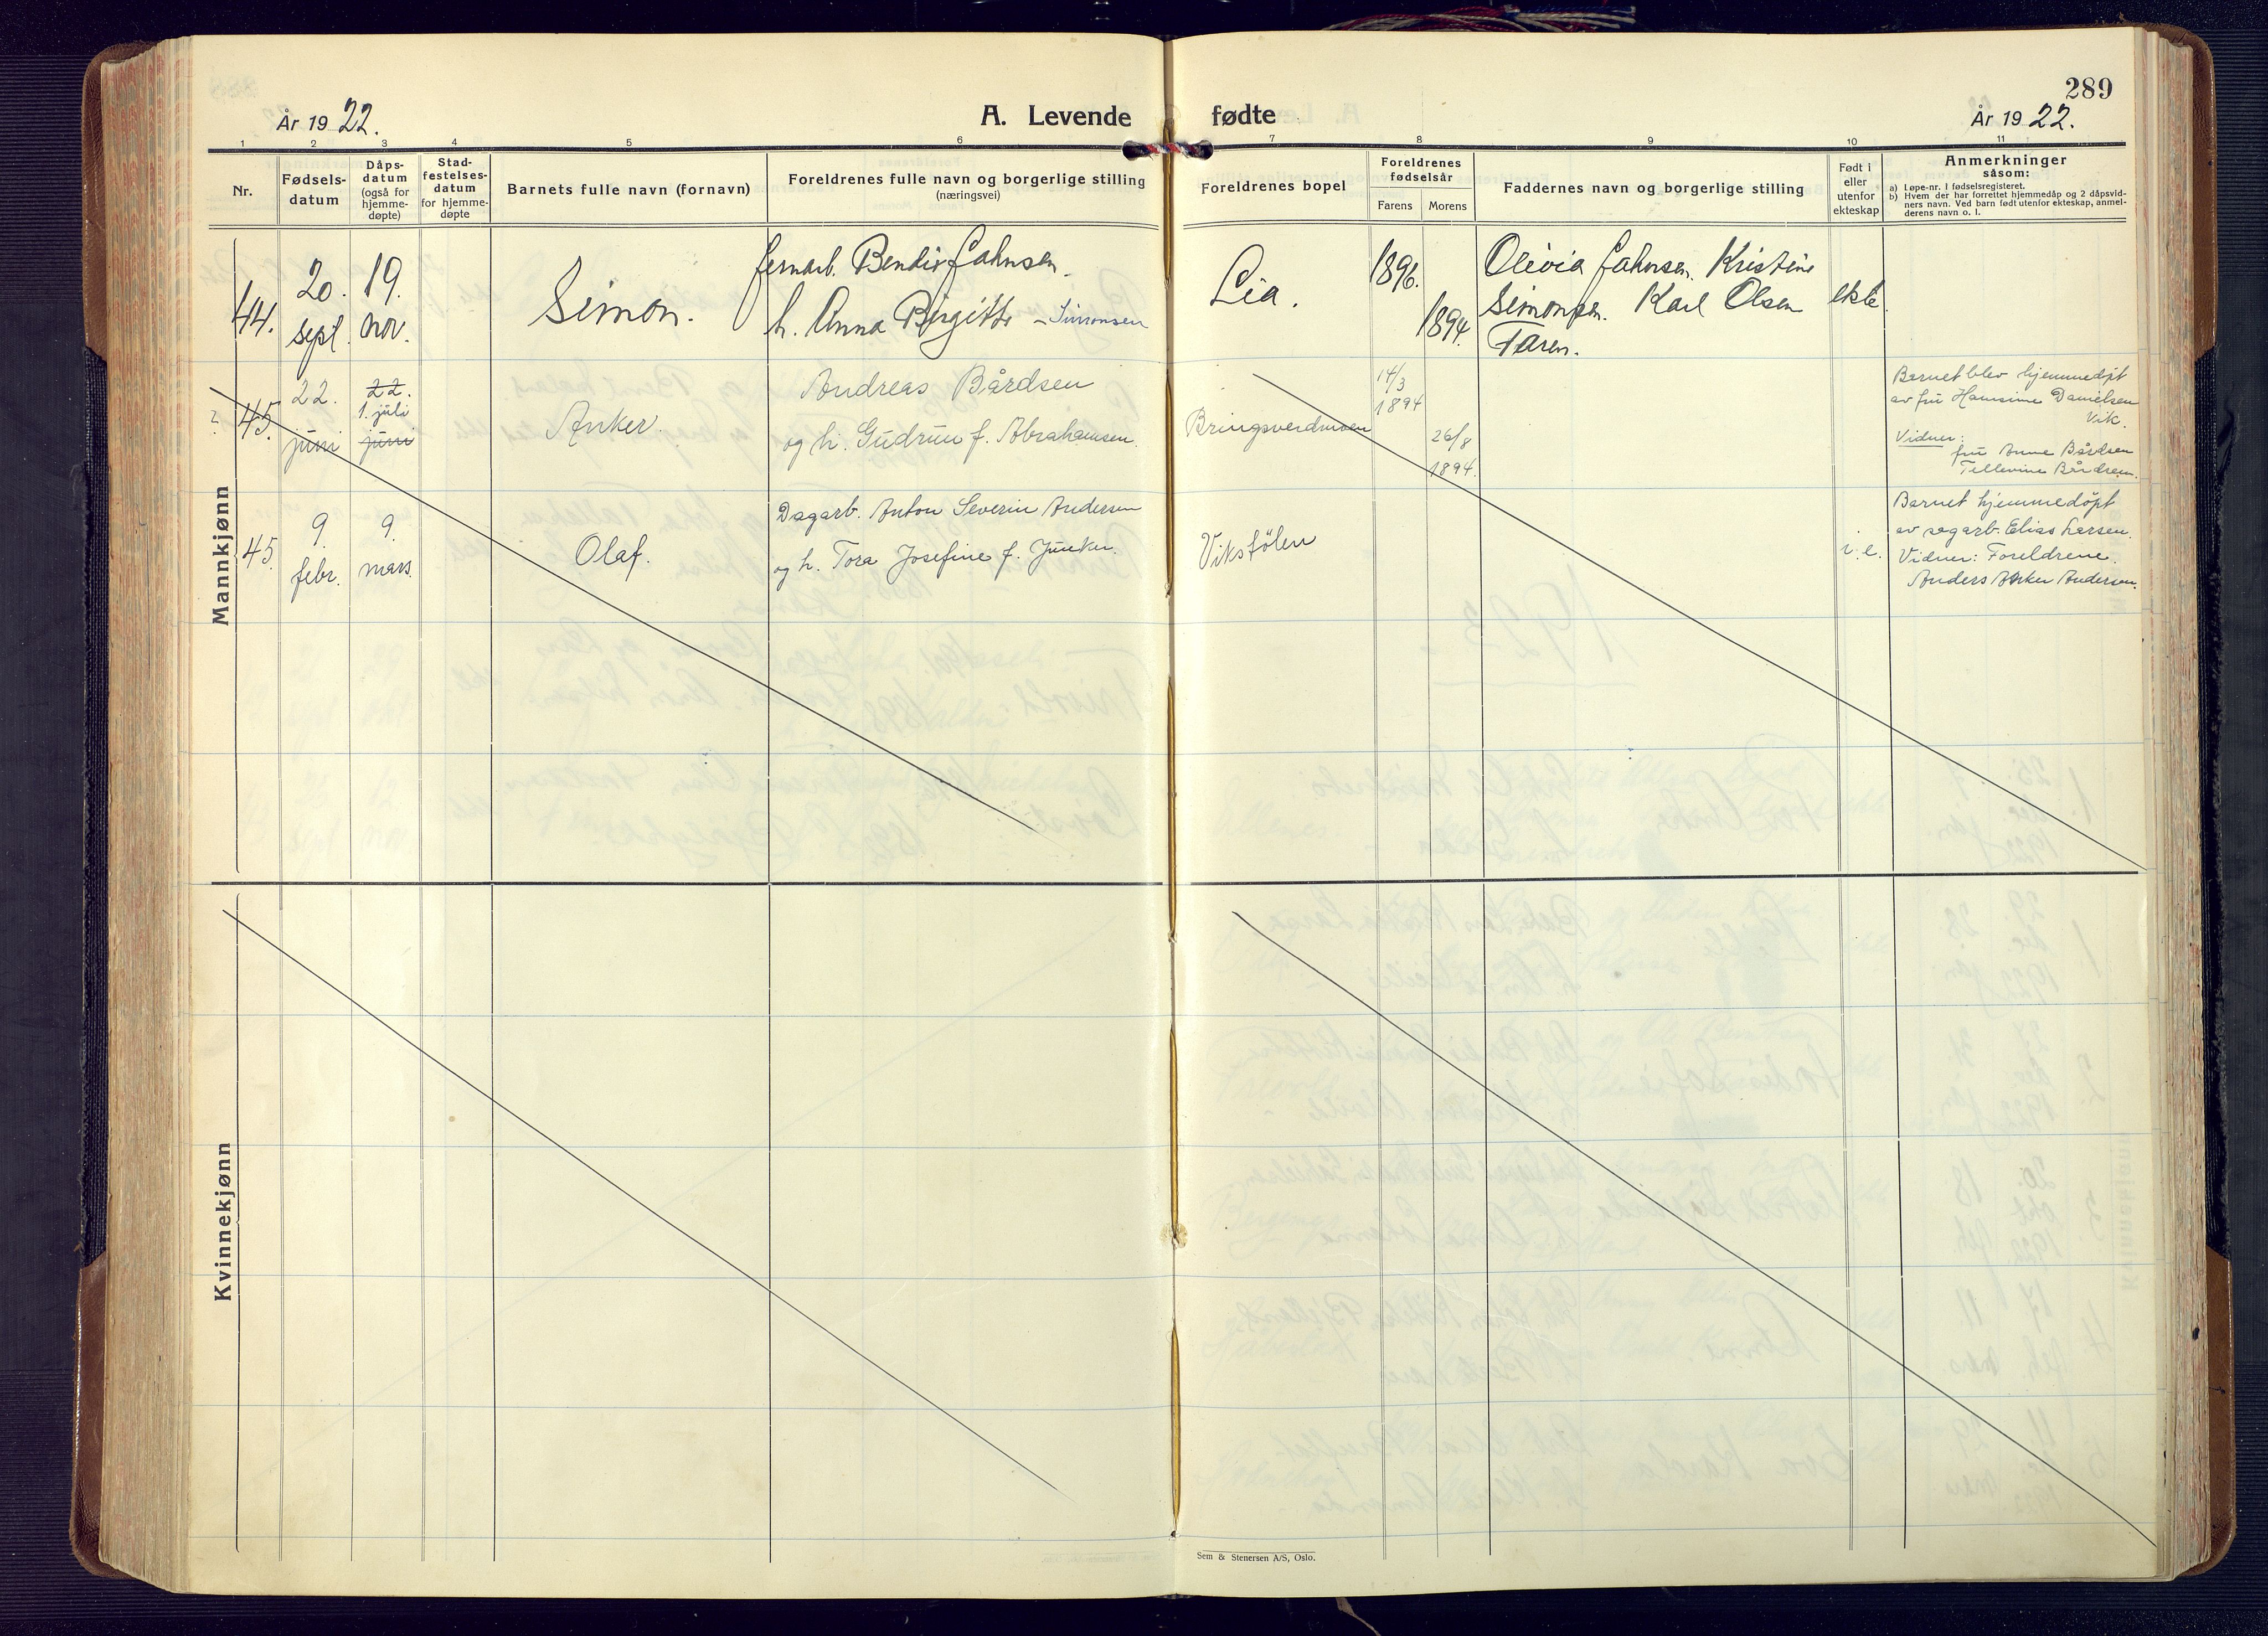 289
År 1922.
A. Levende fødte
År 1922.
1 2 3 4 5 6 7 8 9 10 11
Nr.
Fødsels-
datum
Dåps-
datum
(også for
hjemme-
døpte)
Stad-
festelses-
datum
for hjemme-
døpte
Barnets fulle navn (fornavn)
Foreldrenes fulle navn og borgerlige stilling
(næringsvei)
Foreldrenes bopel
Foreldrenes
fødselsår
Farens
Morens
Faddernes navn og borgerlige stilling
Født i
eller
utenfor
ekteskap
Anmerkninger
såsom:
a) Løpe-nr. i fødselsregisteret.
b) Hvem der har forrettet hjemmedåp og 2 dåpsvid-
ners navn. Ved barn født utenfor ekteskap, anmel-
derens navn o. l.
Mannkjønn
44.
20.
sept.
19.
nov.
Simon.
jernarb. Bendix Jahnsen.
h. Anna Birgitte - Simonsen
Lia.
1896.
1894.
Olivia Jahnsen. Kristine
Simonsen. Karl Olsen
Faren.
ekte
?
45.
22.
juni
22.
1. juli
juni
Anker.
Andreas Bårdsen
og h. Gudrun f. Abrahamsen.
Bringsverdmoen
14/3
1894
26/8
1894.
Barnet blev hjemmedøpt
av fru Hansine Danielsen
Vik.
Vidner:
fru Anne Bårdsen
Tellevine Bårdsen.
45.
9.
febr.
9.
mars.
Olaf.
Dagarb. Anton Severin Andersen
og h. Tora Josefine f. Junker.
Viksfølen
i. e.
Barnet hjemmedøpt
av sagarb. Elias Larsen.
Vidner: Foreldrene.
Anders Anker Andersen.
Kvinnekjønn
Sem & Stenersen A/S, Oslo.